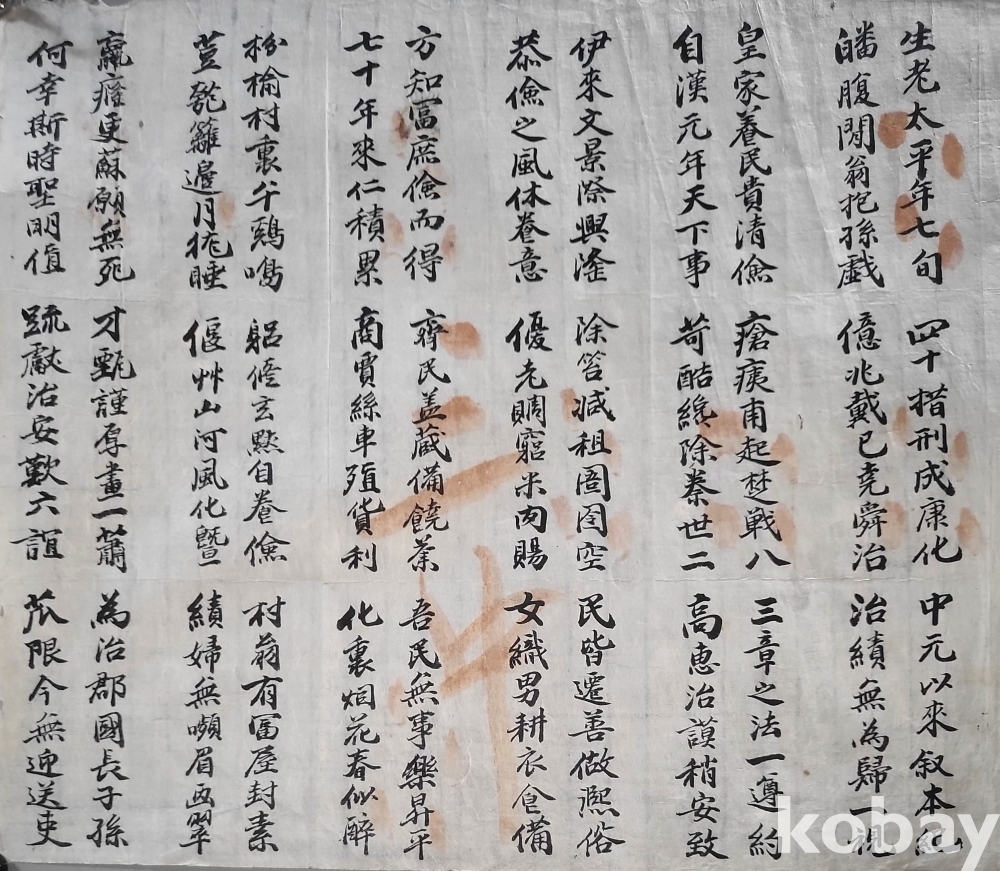 生老太平年七旬
皤腹閒翁抱孫戱
皇家養民貴清儉
自漢元年天下事
伊來文景際興隆
恭儉之風休養意
方知富庶儉而得
七十年來仁積累
枌榆村裏午鷄鳴
荳籬邊月狵睡
羸癃更蘇願無死
何幸斯時聖明值
四十措刑成康化
億兆戴已堯舜治
瘡痍甫起楚戰八
苛酷纔除秦世二
除笞减租囹圄空
優老賙窮米肉賜
齊民盖蔵備饒
商賈絲車殖貨利
躬修玄黙自養儉
偃艸山河風化曁
才甄謹厚畫一蕭
疏獻治安歎六誼
中元以來叙本紀
治績無為歸一視
三章之法一遵約
高惠治謨稍安致
民皆遷善做凞俗
女織男耕衣食備
吾民無事樂昇平
化裏烟花春似醉
村翁有冨屋封素
績婦無嚬眉画翠
為治郡國長子孫
苽限今無迎送吏
kobay